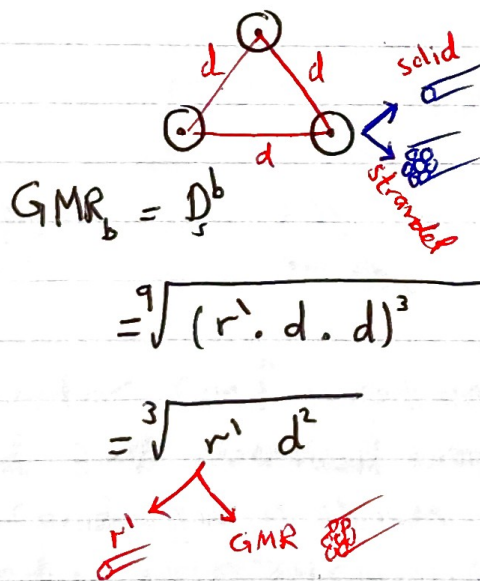 d d solid
d
stranded
GMR_b = D_s^b
= ⁹√(r'. d . d)³
= ³√r' d²
r' GMR